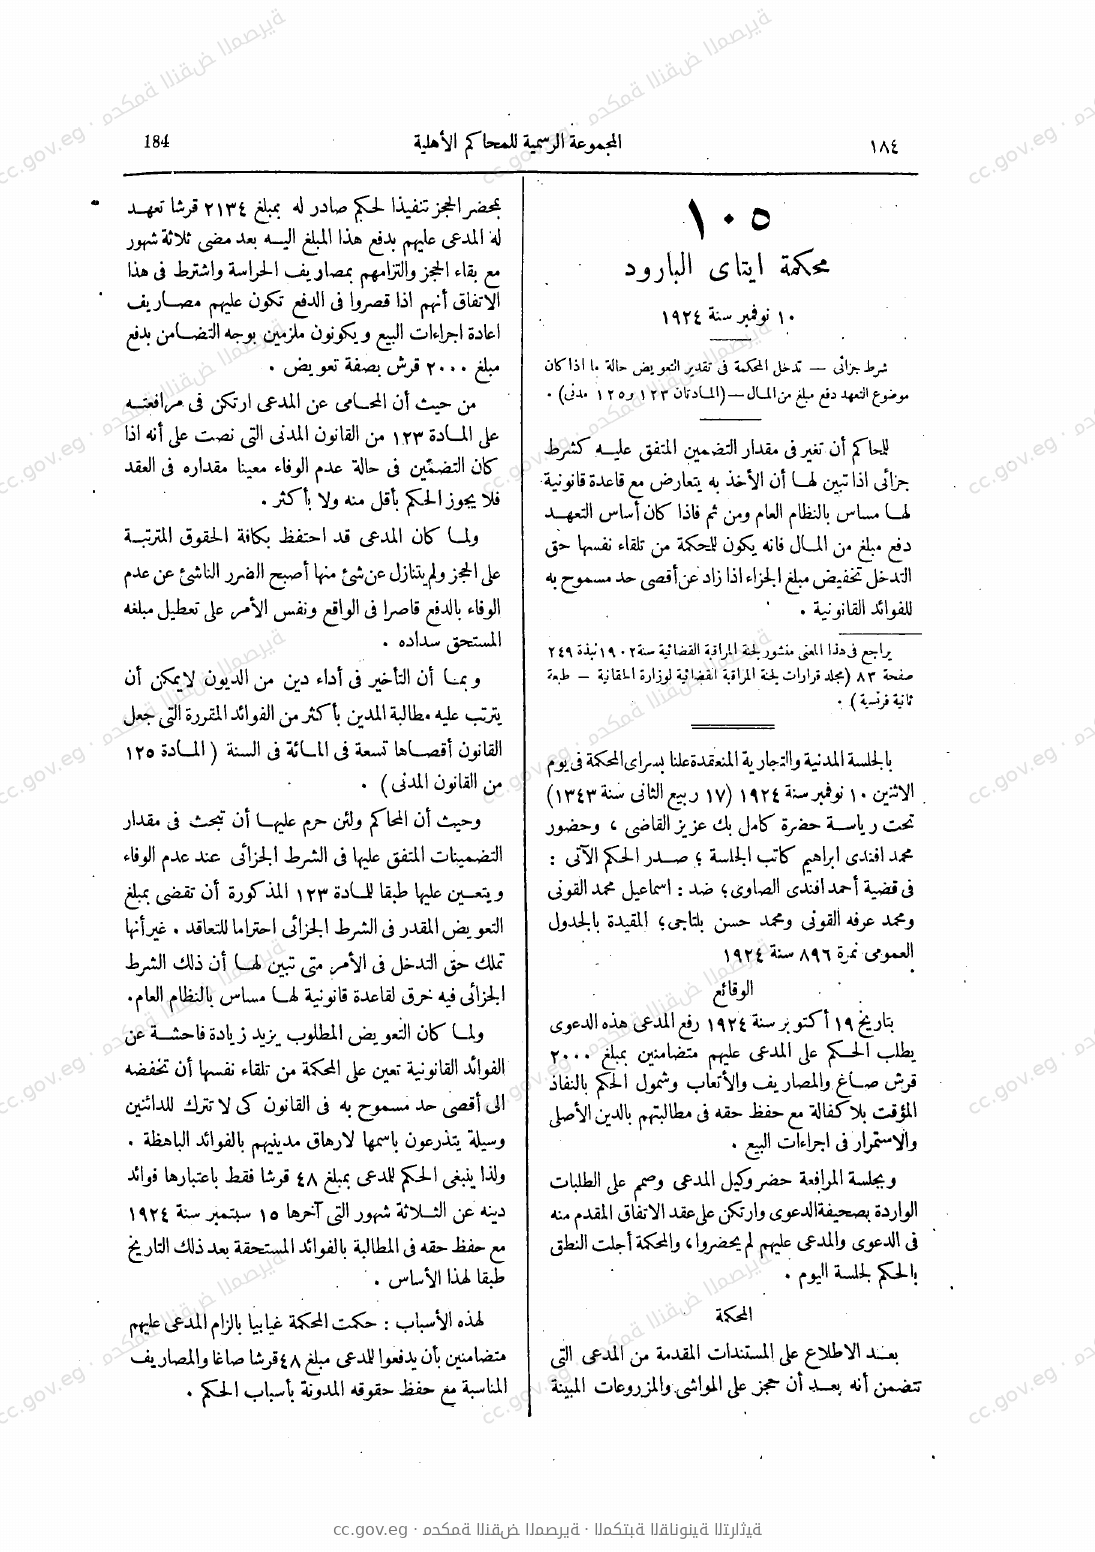 184
المجموعة الرسمية للمحاكم الأهلية
١٨٤
١٠٥
محكمة ايتاى البارود
١٠ نوفمبر سنة ١٩٢٤
شرط جزائى — تدخل المحكمة فى تقدير التعويض حالة ما اذا كان
موضوع التعهد دفع مبلغ من المال — (المادتان ١٢٣ و١٢٥ مدنى) .
للحاكم أن تغير فى مقدار التضمين المتفق عليه كشرط
جزائى اذا تبين لها أن الأخذ به يتعارض مع قاعدة قانونية
لها مساس بالنظام العام ومن ثم فاذا كان أساس التعهد
دفع مبلغ من المال فانه يكون للمحكمة من تلقاء نفسها حق
التدخل بتخفيض مبلغ الجزاء اذا زاد عن أقصى حد مسموح به
للفوائد القانونية .
يراجع فى هذا المعنى منشور لجنة المراقبة القضائية سنة ١٩٠٢ نبذة ٢٤٩
صفحة ٨٣ (مجلد قرارات لجنة المراقبة القضائية لوزارة الحقانية — طبعة
ثانية فرنسية) .
بالجلسة المدنية والتجارية المنعقدة علنا بسراى المحكمة فى يوم
الاثنين ١٠ نوفمبر سنة ١٩٢٤ (١٧ ربيع الثانى سنة ١٣٤٣)
تحت رياسة حضرة كامل بك عزيز القاضى ، وحضور
محمد افندى ابراهيم كاتب الجلسة ؛ صدر الحكم الآتى :
فى قضية أحمد افندى الصاوى ؛ ضد : اسماعيل محمد القونى
ومحمد عرفه القونى ومحمد حسن بلتاجى ؛ المقيدة بالجدول
العمومى نمرة ٨٩٦ سنة ١٩٢٤
الوقائع
بتاريخ ١٩ أكتوبر سنة ١٩٢٤ رفع المدعى هذه الدعوى
يطلب الحكم على المدعى عليهم متضامنين بمبلغ ٢٠٠٠
قرش صاغ والمصاريف والأتعاب وشمول الحكم بالنفاذ
المؤقت بلا كفالة مع حفظ حقه فى مطالبتهم بالدين الأصلى
والاستمرار فى اجراءات البيع .
وبجلسة المرافعة حضر وكيل المدعى وصمم على الطلبات
الواردة بصحيفة الدعوى وارتكن على عقد الاتفاق المقدم منه
فى الدعوى والمدعى عليهم لم يحضروا ، والمحكمة أجلت النطق
بالحكم لجلسة اليوم .
المحكمة
بعد الاطلاع على المستندات المقدمة من المدعى التى
تتضمن أنه بعد أن حجز على المواشى والمزروعات المبينة
بمحضر الحجز تنفيذا لحكم صادر له بمبلغ ٢١٣٤ قرشا تعهد
له المدعى عليهم بدفع هذا المبلغ اليه بعد مضى ثلاثة شهور
مع بقاء الحجز والتزامهم بمصاريف الحراسة واشترط فى هذا
الاتفاق أنهم اذا قصروا فى الدفع تكون عليهم مصاريف
اعادة اجراءات البيع ويكونون ملزمين بوجه التضامن بدفع
مبلغ ٢٠٠٠ قرش بصفة تعويض .
من حيث أن المحامى عن المدعى ارتكن فى مرافعته
على المادة ١٢٣ من القانون المدنى التى نصت على أنه اذا
كان التضمين فى حالة عدم الوفاء معينا مقداره فى العقد
فلا يجوز الحكم بأقل منه ولا بأكثر .
ولما كان المدعى قد احتفظ بكافة الحقوق المترتبة
على الحجز ولم يتنازل عن شئ منها أصبح الضرر الناشئ عن عدم
الوفاء بالدفع قاصرا فى الواقع ونفس الأمر على تعطيل مبلغه
المستحق سداده .
وبما أن التأخير فى أداء دين من الديون لا يمكن أن
يترتب عليه مطالبة المدين بأكثر من الفوائد المقررة التى جعل
القانون أقصاها تسعة فى المائة فى السنة ( المادة ١٢٥
من القانون المدنى ) .
وحيث أن المحاكم ولئن حرم عليها أن تبحث فى مقدار
التضمينات المتفق عليها فى الشرط الجزائى عند عدم الوفاء
ويتعين عليها طبقا للمادة ١٢٣ المذكورة أن تقضى بمبلغ
التعويض المقدر فى الشرط الجزائى احتراما للتعاقد . غير أنها
تملك حق التدخل فى الأمر متى تبين لها أن ذلك الشرط
الجزائى فيه خرق لقاعدة قانونية لها مساس بالنظام العام .
ولما كان التعويض المطلوب يزيد زيادة فاحشة عن
الفوائد القانونية تعين على المحكمة من تلقاء نفسها أن تخفضه
الى أقصى حد مسموح به فى القانون كى لا تترك للدائنين
وسيلة يتذرعون باسمها لارهاق مدينيهم بالفوائد الباهظة .
ولذا ينبغى الحكم للمدعى بمبلغ ٤٨ قرشا فقط باعتبارها فوائد
دينه عن الثلاثة شهور التى آخرها ١٥ سبتمبر سنة ١٩٢٤
مع حفظ حقه فى المطالبة بالفوائد المستحقة بعد ذلك التاريخ
طبقا لهذا الأساس .
لهذه الأسباب : حكمت المحكمة غيابيا بالزام المدعى عليهم
متضامنين بأن يدفعوا للمدعى مبلغ ٤٨ قرشا صاغا والمصاريف
المناسبة مع حفظ حقوقه المدونة بأسباب الحكم .
cc.gov.eg · محكمة النقض المصرية · المكتبة القانونية التراثية